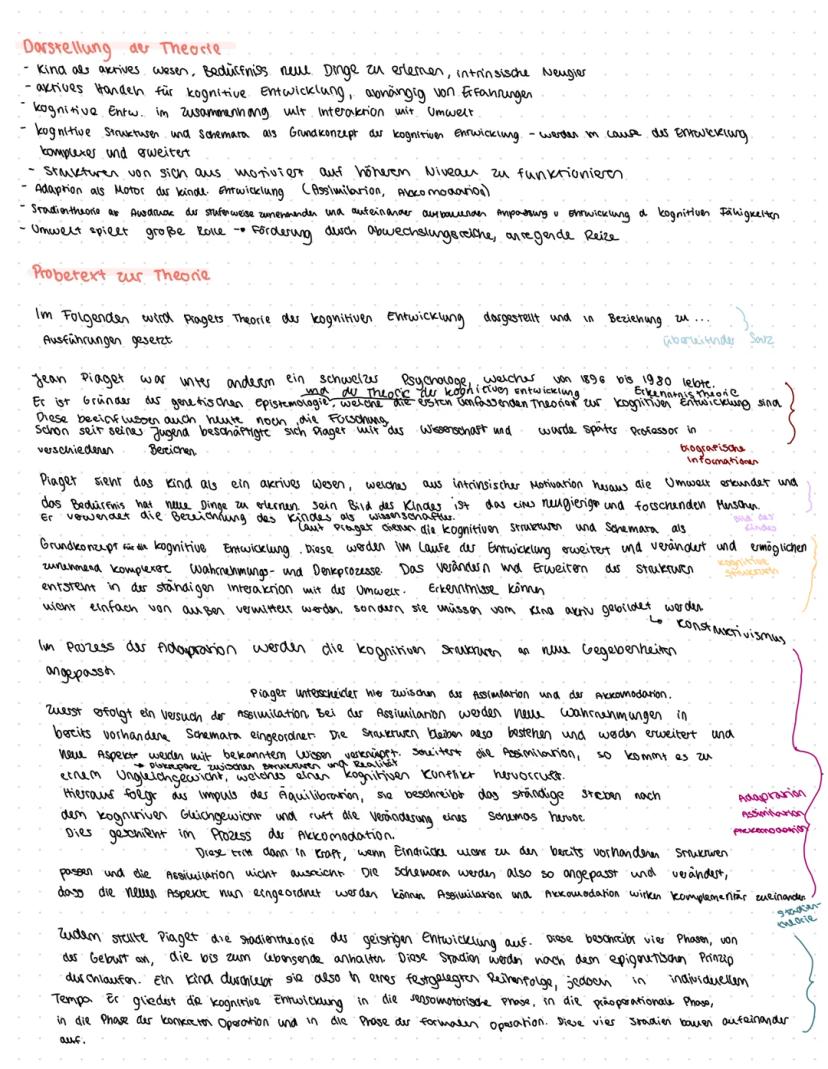 Darstellung der Theorie
- Kind als aktives Wesen, Bedürfnis neue Dinge zu erlernen, intrinsische Neugier
- aktives Handeln für kognitive Entwicklung, abhängig von Erfahrungen
- kognitive Entw. im Zusammenhang mit Interaktion mit Umwelt
- kognitive Strukturen und Schemata als Grundkonzept der kognitiven Entwicklung - werden im Laufe der Entwicklung
komplexer und erweitert
- Strukturen von sich aus motiviert auf höherem Niveau zu funktionieren
- Adaption als Motor der kindl. Entwicklung (Assimilation, Akkomodation)
- Stadientheorie als Ausdruck der stufenweise zunehmenden und aufeinander aufbauenden Anpassung u Entwicklung d kognitiven Fähigkeiten
- Umwelt spielt große Rolle → Förderung durch abwechslungsreiche, anregende Reize
Probetext zur Theorie
Im Folgenden wird Piagets Theorie der kognitiven Entwicklung dargestellt und in Beziehung zu ...
Ausführungen gesetzt
überleitender Satz
Jean Piaget war unter anderem ein schweizer Psychologe, welcher von 1896 bis 1980 lebte.
und der Theorie der kognitiven Entwicklung Erkenntnistheorie
Er ist Gründer der genetischen Epistemologie, welche die ersten umfassenden Theorien zur kognitiven Entwicklung sind
Diese beeinflussen auch heute noch die Forschung
Schon seit seiner Jugend beschäftigte sich Piaget mit der Wissenschaft und wurde später Professor in
verschiedenen Bereichen
biografische
Informationen
Piaget sieht das Kind als ein aktives Wesen, welches aus intrinsischer Motivation heraus die Umwelt erkundet und
das Bedürfnis hat neue Dinge zu erlernen. Sein Bild des Kindes ist das eines neugierigen und forschenden Menschen.
Er verwendet die Bezeichnung des Kindes als Wissenschaftler.
Bild des
Kindes
Laut Piaget dienen die kognitiven Strukturen und Schemata als
Grundkonzept für die kognitive Entwicklung. Diese werden im Laufe der Entwicklung erweitert und verändert und ermöglichen
zunehmend komplexere Wahrnehmungs- und Denkprozesse. Das Verändern und Erweitern der Strukturen
kognitive
Strukturen
entsteht in der ständigen Interaktion mit der Umwelt. Erkenntnisse können
nicht einfach von außen vermittelt werden, sondern sie müssen vom Kind aktiv gebildet werden
↳ Konstruktivismus
Im Prozess der Adaptation werden die kognitiven Strukturen an neue Gegebenheiten
angepasst.
Piaget unterscheidet hier zwischen der Assimilation und der Akkomodation.
Zuerst erfolgt ein Versuch der Assimilation. Bei der Assimilation werden neue Wahrnehmungen in
bereits vorhandene Schemata eingeordnet. Die Strukturen bleiben also bestehen und werden erweitert und
neue Aspekte werden mit bekanntem Wissen verknüpft. Scheitert die Assimilation, so kommt es zu
→ Diskrepanz zwischen Strukturen und Realität
einem Ungleichgewicht, welches einen kognitiven Konflikt hervorruft.
Hieraus folgt der Impuls der Äquilibration, sie beschreibt das ständige Streben nach
dem kognitiven Gleichgewicht und ruft die Veränderung eines Schemas hervor.
Dies geschieht im Prozess der Akkomodation.
Adaptation
Assimilation
Akkomodation
Diese tritt dann in Kraft, wenn Eindrücke nicht zu den bereits vorhandenen Strukturen
passen und die Assimilation nicht ausreicht. Die Schemata werden also so angepasst und verändert,
dass die neuen Aspekte nun eingeordnet werden können. Assimilation und Akkomodation wirken komplementär zueinander
Stadien-
theorie
Zudem stellte Piaget die Stadientheorie der geistigen Entwicklung auf. Diese beschreibt vier Phasen, von
der Geburt an, die bis zum Lebensende anhalten. Diese Stadien werden nach dem epigenetischen Prinzip
durchlaufen. Ein Kind durchlebt sie also in einer festgelegten Reihenfolge, jedoch in individuellem
Tempo. Er gliedert die kognitive Entwicklung in die sensomotorische Phase, in die präoperationale Phase,
in die Phase der konkreten Operation und in die Phase der formalen Operation. Diese vier Stadien bauen aufeinander
auf.